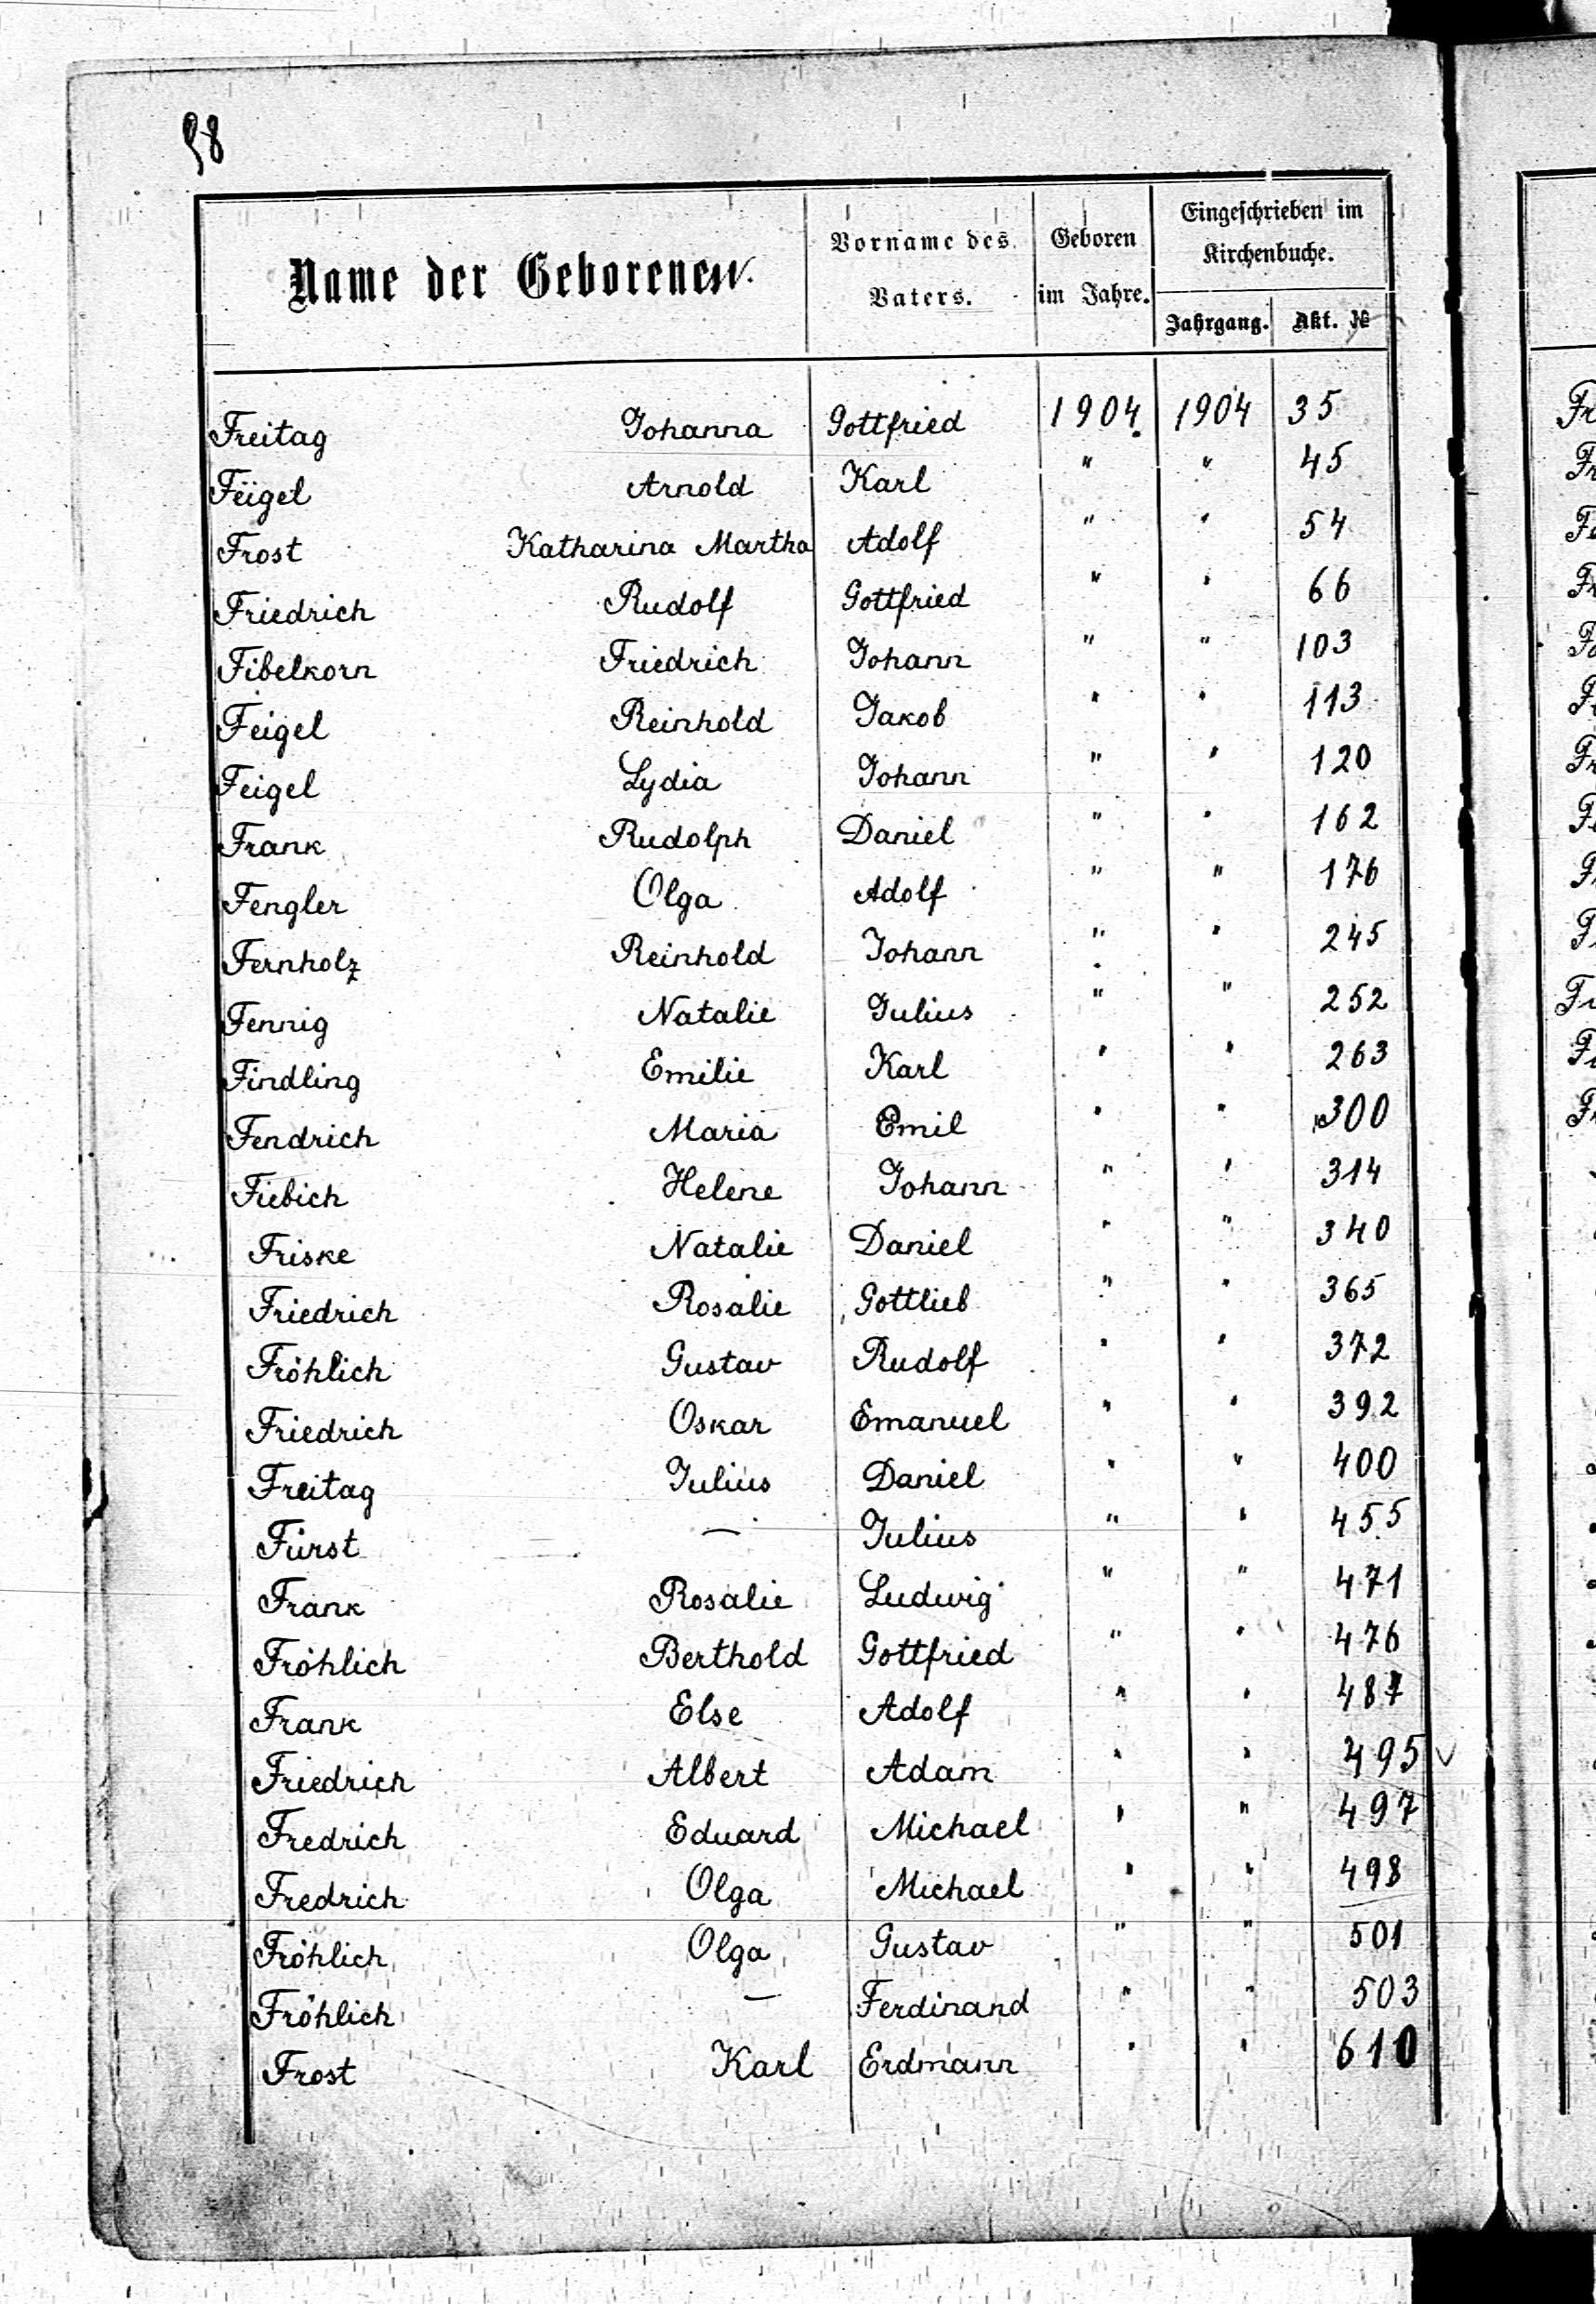 98
Name der Geborenen.
Vorname des Vaters.
Geboren im Jahre.
Eingeschrieben im Kirchenbuche.
Jahrgang. Akt. №
Freitag Johanna Gottfried 1904 1904 35
Feigel Arnold Karl " " 45
Frost Katharina Martha Adolf " " 54
Friedrich Rudolf Gottfried " " 66
Fibelkorn Friedrich Johann " " 103
Feigel Reinhold Jakob " " 113
Feigel Lydia Johann " " 120
Frank Rudolph Daniel " " 162
Fengler Olga Adolf " " 176
Fernholz Reinhold Johann " " 245
Fennig Natalie Julius " " 252
Findling Emilie Karl " " 263
Fendrich Maria Emil " " 300
Fiebich Helene Johann " " 314
Friske Natalie Daniel " " 340
Friedrich Rosalie Gottlieb " " 365
Fröhlich Gustav Rudolf " " 372
Friedrich Oskar Emanuel " " 392
Freitag Julius Daniel " " 400
Fürst — Julius " " 455
Frank Rosalie Ludwig " " 471
Fröhlich Berthold Gottfried " " 476
Frank Else Adolf " " 487
Friedrich Albert Adam " " 495 √
Fredrich Eduard Michael " " 497
Fredrich Olga Michael " " 498
Fröhlich Olga Gustav " " 501
Fröhlich — Ferdinand " " 503
Frost Karl Erdmann " " 610